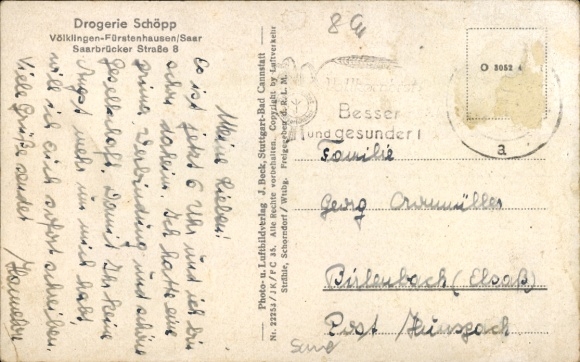 Drogerie Schöpp
Völklingen-Fürstenhausen/Saar
Saarbrücker Straße 8
Meine Lieben!
Es ist jetzt 6 Uhr und ich bin
schon daheim. Ich hatte eine
prima Verbindung und schöne
Gesellschaft. Damit Ihr keine
Angst mehr um mich habt,
will ich euch sofort schreiben.
Viele Grüße sendet
Photo- u. Luftbildverlag J. Beck, Stuttgart-Bad Cannstatt
Nr. 22253/JK/PC 35. Alle Rechte vorbehalten. Copyright by Luftverkehr
Strähle, Schorndorf/Wttbg. Freigegeben d. R. L. M.
O 3052 4
Besser
und gesünder!
a
Familie
Georg
Birlenbach (Elsaß)
Post Hunspach